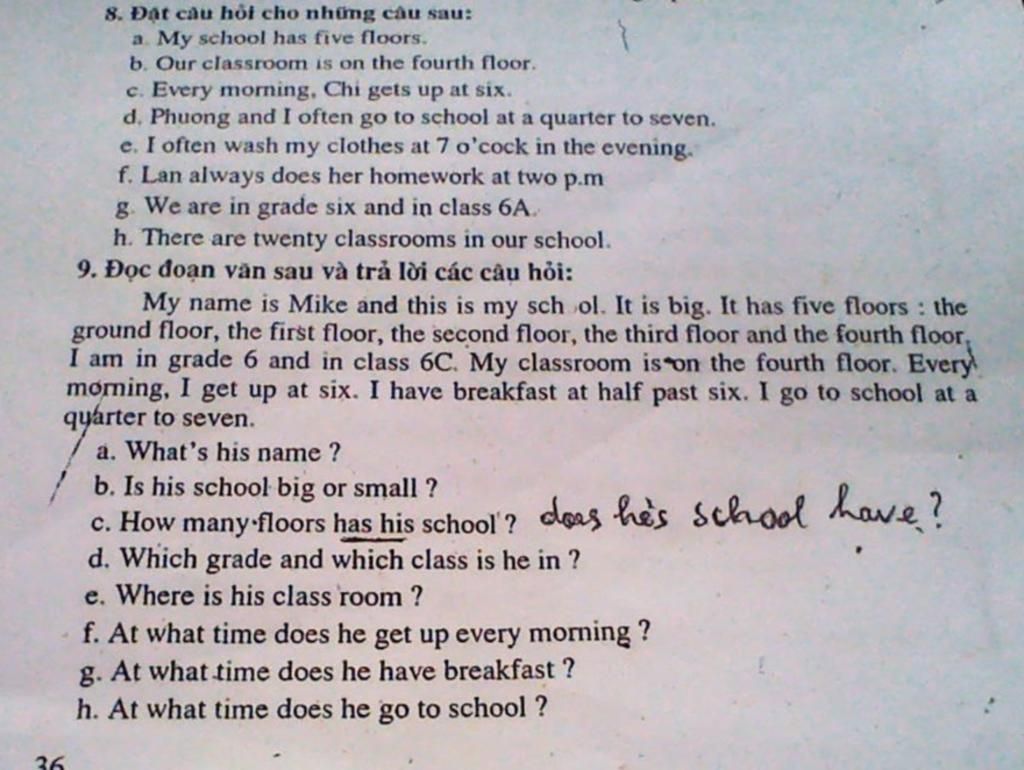 8. Đặt câu hỏi cho những câu sau:
a. My school has five floors.
b. Our classroom is on the fourth floor.
c. Every morning, Chi gets up at six.
d. Phuong and I often go to school at a quarter to seven.
e. I often wash my clothes at 7 o'cock in the evening.
f. Lan always does her homework at two p.m
g. We are in grade six and in class 6A.
h. There are twenty classrooms in our school.
9. Đọc đoạn văn sau và trả lời các câu hỏi:
My name is Mike and this is my sch ol. It is big. It has five floors : the
ground floor, the first floor, the second floor, the third floor and the fourth floor.
I am in grade 6 and in class 6C. My classroom is on the fourth floor. Every
morning, I get up at six. I have breakfast at half past six. I go to school at a
quarter to seven.
a. What's his name ?
b. Is his school big or small ?
c. How many floors has his school ? does he's school have ?
d. Which grade and which class is he in ?
e. Where is his class room ?
f. At what time does he get up every morning ?
g. At what time does he have breakfast ?
h. At what time does he go to school ?
36